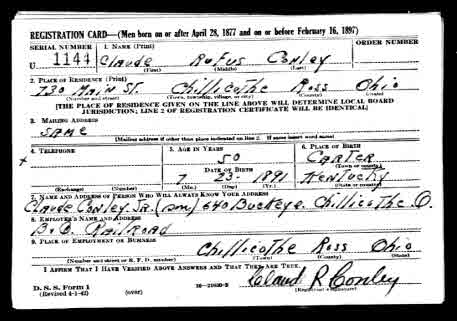 REGISTRATION CARD—(Men born on or after April 28, 1877 and on or before February 16, 1897)
SERIAL NUMBER 1. NAME (Print) ORDER NUMBER
U 1144 Claude Rufus Conley
(First) (Middle) (Last)
2. PLACE OF RESIDENCE (Print)
730 Main St. Chillicothe Ross Ohio
(Number and street) (Town, township, village, or city) (County) (State)
[THE PLACE OF RESIDENCE GIVEN ON THE LINE ABOVE WILL DETERMINE LOCAL BOARD
JURISDICTION; LINE 2 OF REGISTRATION CERTIFICATE WILL BE IDENTICAL]
3. MAILING ADDRESS
Same
[Mailing address if other than place indicated on line 2. If same insert word same]
4. TELEPHONE 5. AGE IN YEARS 6. PLACE OF BIRTH
x 50 Carter
DATE OF BIRTH (Town or county)
7 23- 1891 Kentucky
(Exchange) (Number) (Mo.) (Day) (Yr.) (State or country)
7. NAME AND ADDRESS OF PERSON WHO WILL ALWAYS KNOW YOUR ADDRESS
Claude Conley, Jr. (son) 640 Buckeye. Chillicothe O.
8. EMPLOYER'S NAME AND ADDRESS
B. O. Railroad
9. PLACE OF EMPLOYMENT OR BUSINESS
Chillicothe Ross Ohio
(Number and street or R. F. D. number) (Town) (County) (State)
I AFFIRM THAT I HAVE VERIFIED ABOVE ANSWERS AND THAT THEY ARE TRUE.
D. S. S. Form 1 Claud R Conley
(Revised 4-1-42) (over) (Registrant's signature)